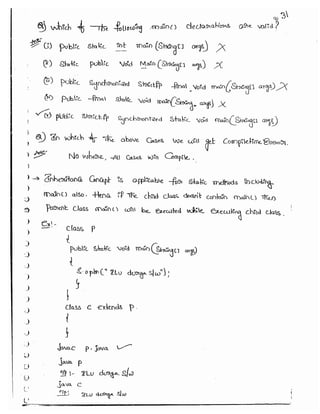 31
Q) which of the following main() declarations are valid?
(1) public static int main (String[] args) X
(2) static public void Main (String[] args) X
(3) public synchronized strictfp final void main(String[] args) X
(4) public final static void main(String args) X
✓ (5) public strictfp synchronized static void main(String[] args)
Q) In which of the above Cases we will get CompiletimeErrors.
Ans: No where, All Cases will Compile.
→ Inheritance Concept is applicable for static methods including
main() also. Hence if the child class doesn't contain main() then
Parent Class main() will be executed while executing child class.
Ex:- class P
{
public static void main(String[] args)
{
S.o.pln("
");
}
}
class C extends P
{
}
javac P.java ✓
java P
O/P :-
S/W
java C
O/P:
S/W